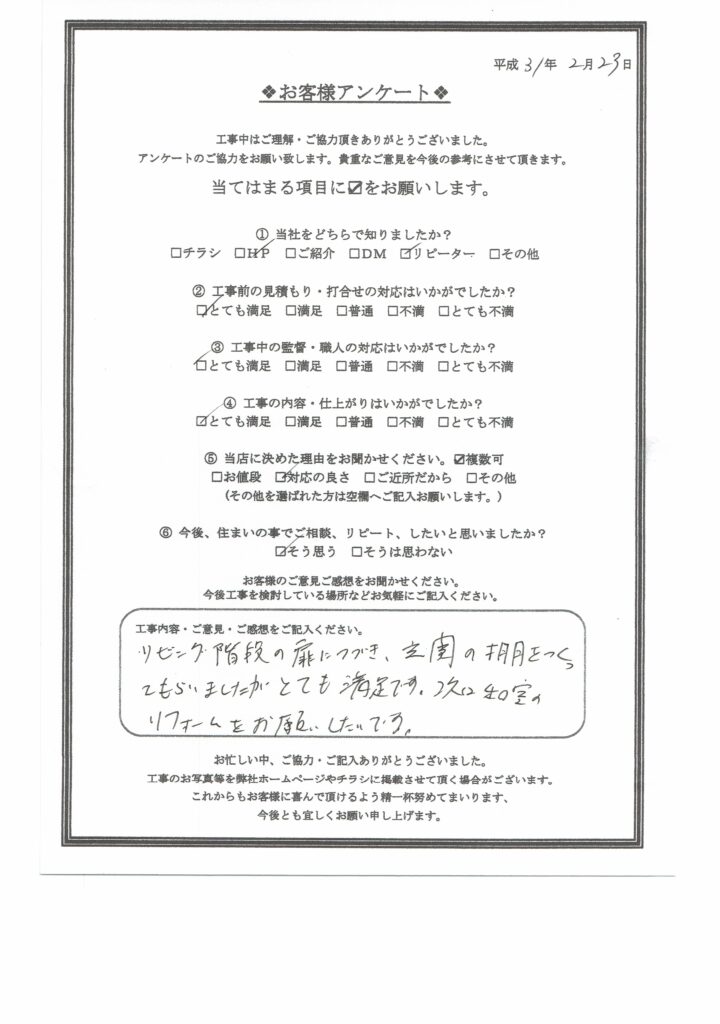 平成 31年 2月23日
❖お客様アンケート❖
工事中はご理解・ご協力頂きありがとうございました。
アンケートのご協力をお願い致します。貴重なご意見を今後の参考にさせて頂きます。
当てはまる項目に☑をお願いします。
① 当社をどちらで知りましたか？
□チラシ ☑HP □ご紹介 □DM ☑リピーター □その他
② 工事前の見積もり・打合せの対応はいかがでしたか？
☑とても満足 □満足 □普通 □不満 □とても不満
③ 工事中の監督・職人の対応はいかがでしたか？
☑とても満足 □満足 □普通 □不満 □とても不満
④ 工事の内容・仕上がりはいかがでしたか？
☑とても満足 □満足 □普通 □不満 □とても不満
⑤ 当店に決めた理由をお聞かせください。☑複数可
□お値段 ☑対応の良さ □ご近所だから □その他
（その他を選ばれた方は空欄へご記入お願いします。）
⑥ 今後、住まいの事でご相談、リピート、したいと思いましたか？
☑そう思う □そうは思わない
お客様のご意見ご感想をお聞かせください。
今後工事を検討している場所などお気軽にご記入ください。
工事内容・ご意見・ご感想をご記入ください。
リビング階段の扉につづき、玄関の棚をつくっ
てもらいましたがとても満足です。次は和室の
リフォームをお願いしたいです。
お忙しい中、ご協力・ご記入ありがとうございました。
工事のお写真等を弊社ホームページやチラシに掲載させて頂く場合がございます。
これからもお客様に喜んで頂けるよう精一杯努めてまいります、
今後とも宜しくお願い申し上げます。